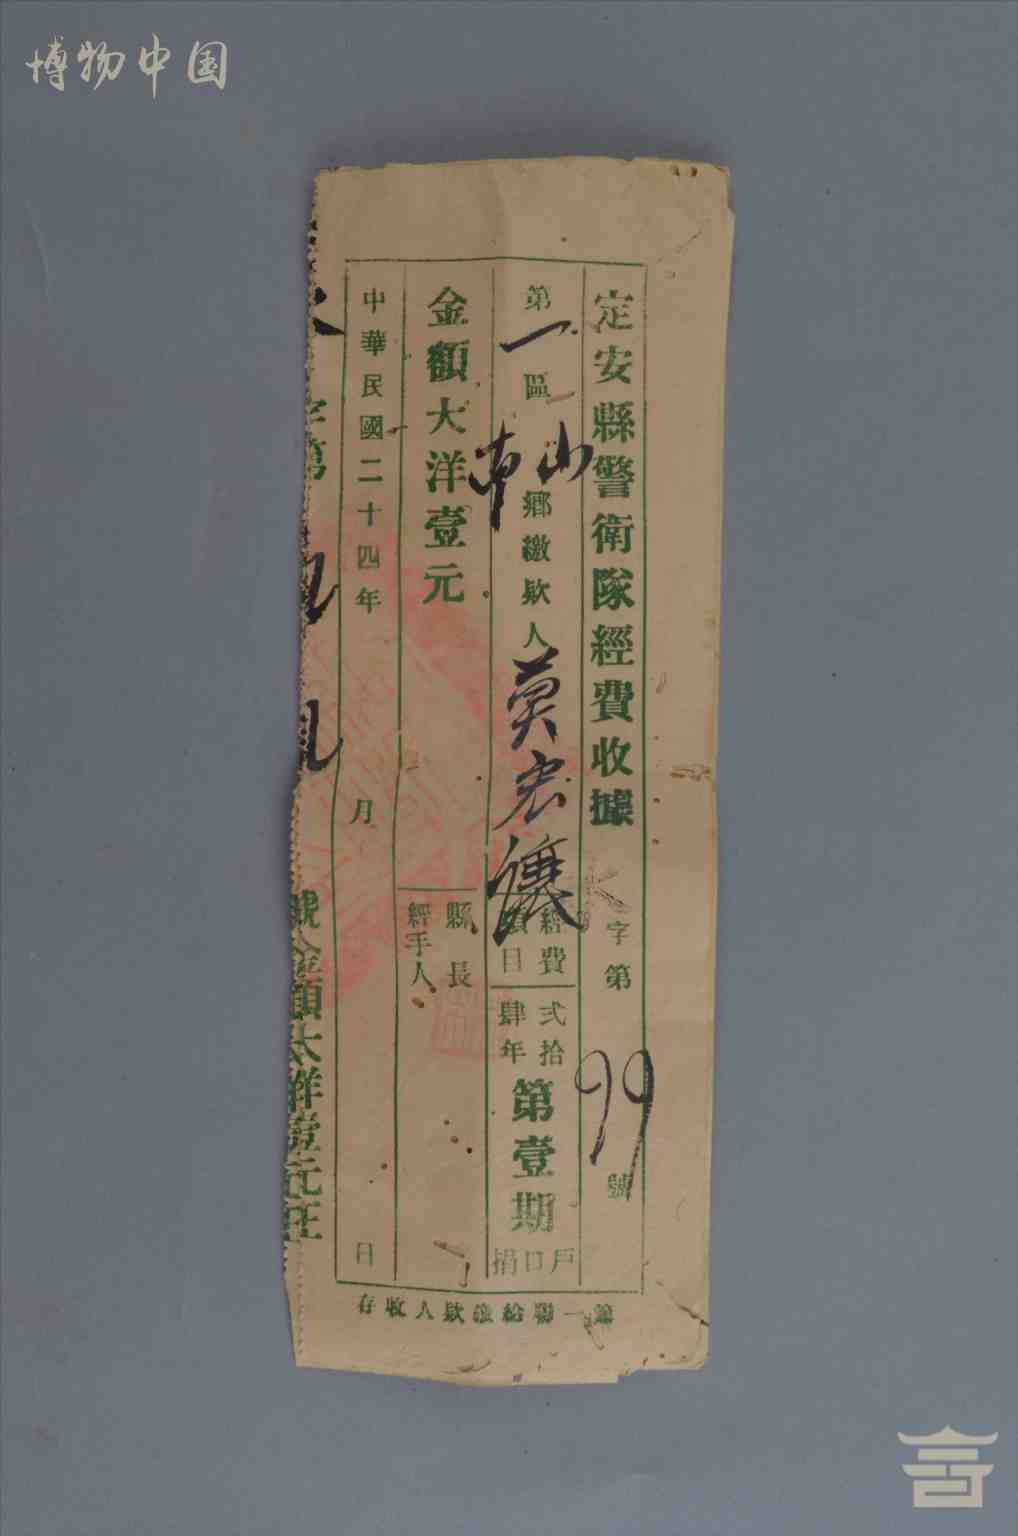 博物中国
定安縣警衛隊經費收據
字第99號
第一區山南鄉繳欵人莫宏讓
經費項目
弍拾肆年
第壹期
戶口捐
金額大洋壹元
縣長
經手人
中華民國二十四年 月 日
字第
號金額大洋壹元正
第一聯給繳欵人收存